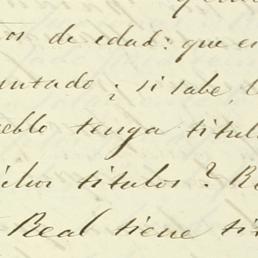 os de edad: que en
untado ¿ si sabe, l
eblo tenga titulo
ichos titulos? R
Real tiene tit